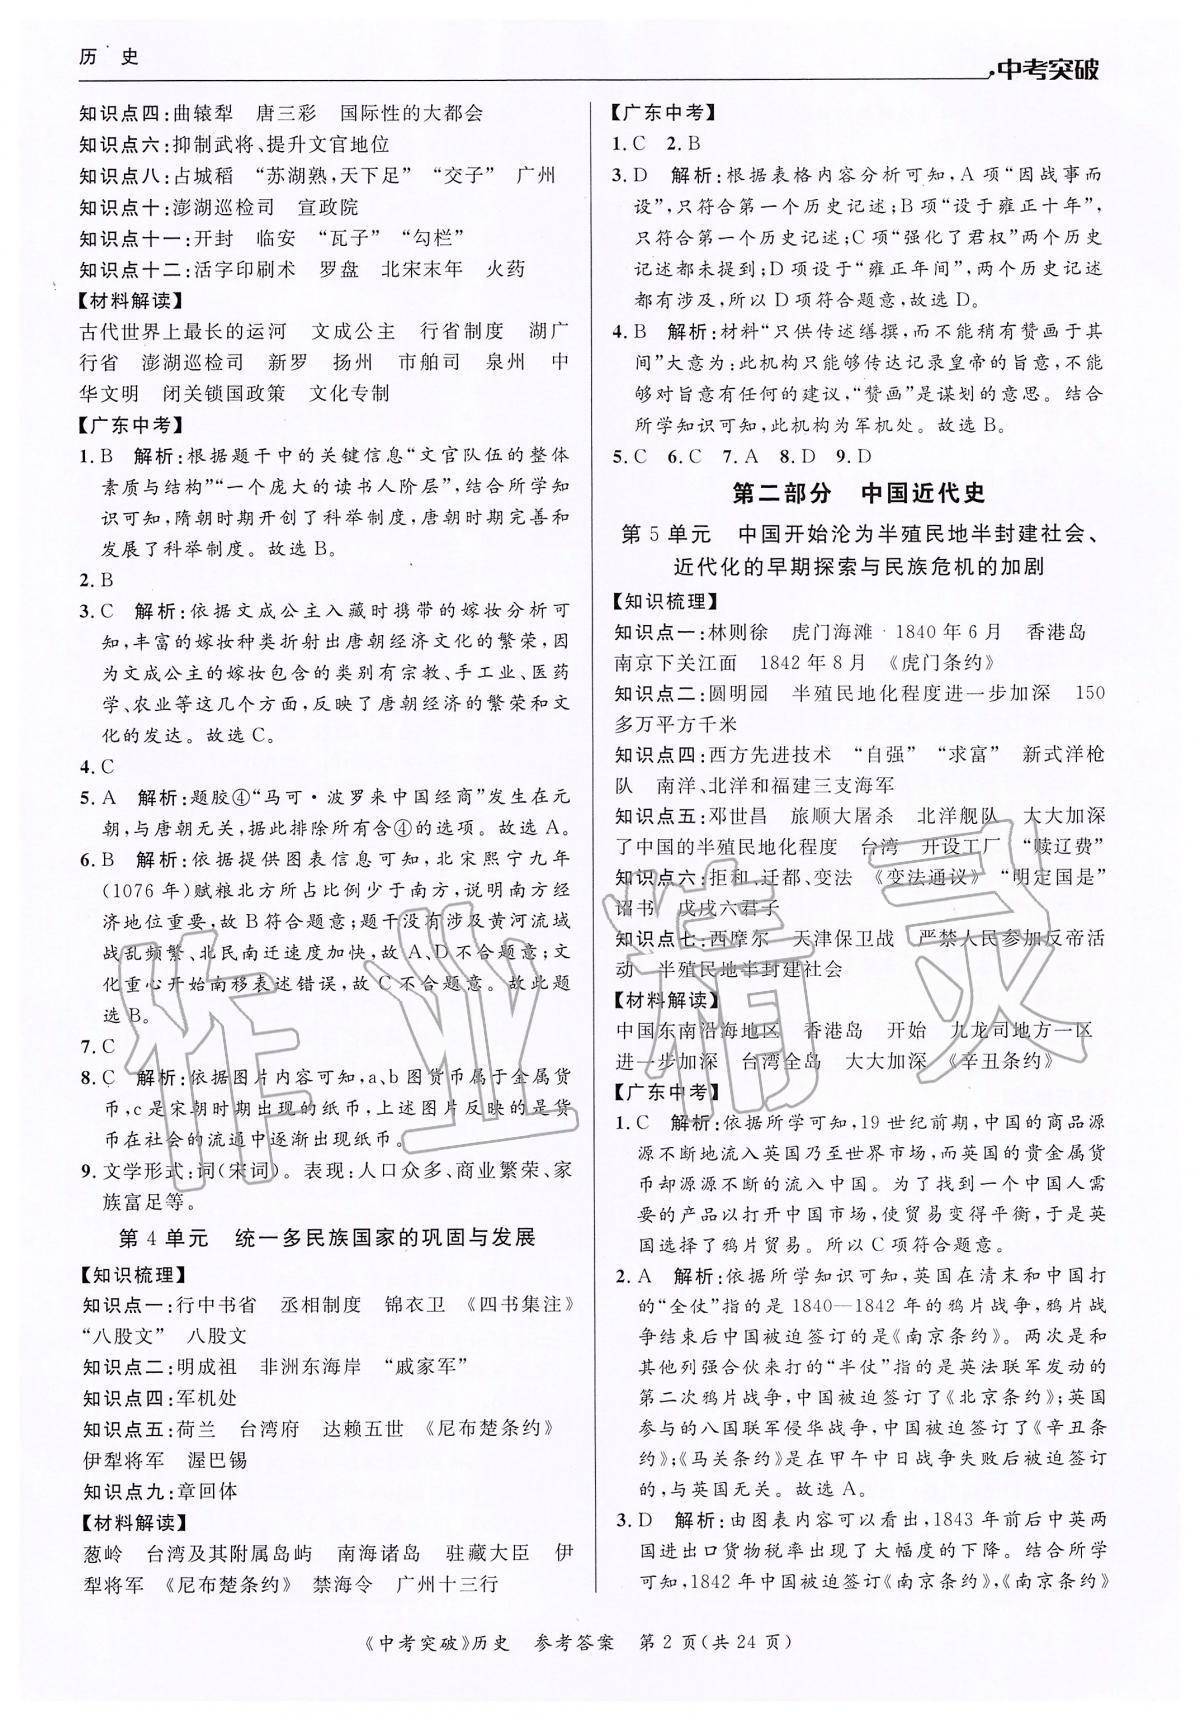 历 史
中考突破
知识点四:曲辕犁 唐三彩 国际性的大都会
知识点六:抑制武将、提升文官地位
知识点八:占城稻 “苏湖熟,天下足” “交子” 广州
知识点十:澎湖巡检司 宣政院
知识点十一:开封 临安 “瓦子” “勾栏”
知识点十二:活字印刷术 罗盘 北宋末年 火药
【材料解读】
古代世界上最长的运河 文成公主 行省制度 湖广
行省 澎湖巡检司 新罗 扬州 市舶司 泉州 中
华文明 闭关锁国政策 文化专制
【广东中考】
1. B 解析:根据题干中的关键信息“文官队伍的整体
素质与结构”“一个庞大的读书人阶层”,结合所学知
识可知,隋朝时期开创了科举制度,唐朝时期完善和
发展了科举制度。故选 B。
2. B
3. C 解析:依据文成公主入藏时携带的嫁妆分析可
知,丰富的嫁妆种类折射出唐朝经济文化的繁荣,因
为文成公主的嫁妆包含的类别有宗教、手工业、医药
学、农业等这几个方面,反映了唐朝经济的繁荣和文
化的发达。故选 C。
4. C
5. A 解析:题胶④“马可·波罗来中国经商”发生在元
朝,与唐朝无关,据此排除所有含④的选项。故选 A。
6. B 解析:依据提供图表信息可知,北宋熙宁九年
(1076 年)赋粮北方所占比例少于南方,说明南方经
济地位重要,故 B 符合题意;题干没有涉及黄河流域
战乱频繁、北民南迁速度加快,故 A、D 不合题意;文
化重心开始南移表述错误,故 C 不合题意。故此题
选 B。
7. C
8. C 解析:依据图片内容可知,a、b 图货币属于金属货
币,c 是宋朝时期出现的纸币,上述图片反映的是货
币在社会的流通中逐渐出现纸币。
9. 文学形式:词(宋词)。表现:人口众多、商业繁荣、家
族富足等。
第 4 单元 统一多民族国家的巩固与发展
【知识梳理】
知识点一:行中书省 丞相制度 锦衣卫 《四书集注》
“八股文” 八股文
知识点二:明成祖 非洲东海岸 “戚家军”
知识点四:军机处
知识点五:荷兰 台湾府 达赖五世 《尼布楚条约》
伊犁将军 渥巴锡
知识点九:章回体
【材料解读】
葱岭 台湾及其附属岛屿 南海诸岛 驻藏大臣 伊
犁将军 《尼布楚条约》 禁海令 广州十三行
【广东中考】
1. C 2. B
3. D 解析:根据表格内容分析可知,A 项“因战事而
设”,只符合第一个历史记述;B 项“设于雍正十年”,
只符合第一个历史记述;C 项“强化了君权”两个历史
记述都未提到;D 项设于“雍正年间”,两个历史记述
都有涉及,所以 D 项符合题意,故选 D。
4. B 解析:材料“只供传述缮撰,而不能稍有赞画于其
间”大意为:此机构只能够传达记录皇帝的旨意,不能
够对旨意有任何的建议,“赞画”是谋划的意思。结合
所学知识可知,此机构为军机处。故选 B。
5. C 6. C 7. A 8. D 9. D
第二部分 中国近代史
第 5 单元 中国开始沦为半殖民地半封建社会、
近代化的早期探索与民族危机的加剧
【知识梳理】
知识点一:林则徐 虎门海滩 1840 年 6 月 香港岛
南京下关江面 1842 年 8 月 《虎门条约》
知识点二:圆明园 半殖民地化程度进一步加深 150
多万平方千米
知识点四:西方先进技术 “自强” “求富” 新式洋枪
队 南洋、北洋和福建三支海军
知识点五:邓世昌 旅顺大屠杀 北洋舰队 大大加深
了中国的半殖民地化程度 台湾 开设工厂 “赎辽费”
知识点六:拒和、迁都、变法 《变法通议》 “明定国是”
诏书 戊戌六君子
知识点七:西摩尔 天津保卫战 严禁人民参加反帝活
动 半殖民地半封建社会
【材料解读】
中国东南沿海地区 香港岛 开始 九龙司地方一区
进一步加深 台湾全岛 大大加深 《辛丑条约》
【广东中考】
1. C 解析:依据所学可知,19 世纪前期,中国的商品源
源不断地流入英国乃至世界市场,而英国的贵金属货
币却源源不断的流入中国。为了找到一个中国人需
要的产品以打开中国市场,使贸易变得平衡,于是英
国选择了鸦片贸易。所以 C 项符合题意。
2. A 解析:依据所学知识可知,英国在清末和中国打
的“全仗”指的是 1840—1842 年的鸦片战争,鸦片战
争结束后中国被迫签订的是《南京条约》。两次是和
其他列强合伙来打的“半仗”指的是英法联军发动的
第二次鸦片战争,中国被迫签订了《北京条约》;英国
参与的八国联军侵华战争,中国被迫签订了《辛丑条
约》;《马关条约》是在甲午中日战争失败后被迫签订
的,与英国无关。故选 A。
3. D 解析:由图表内容可以看出,1843 年前后中英两
国进出口货物税率出现了大幅度的下降。结合所学
可知,1842 年中国被迫签订《南京条约》,《南京条约》
《中考突破》历史 参考答案 第 2 页(共 24 页)
作业精灵